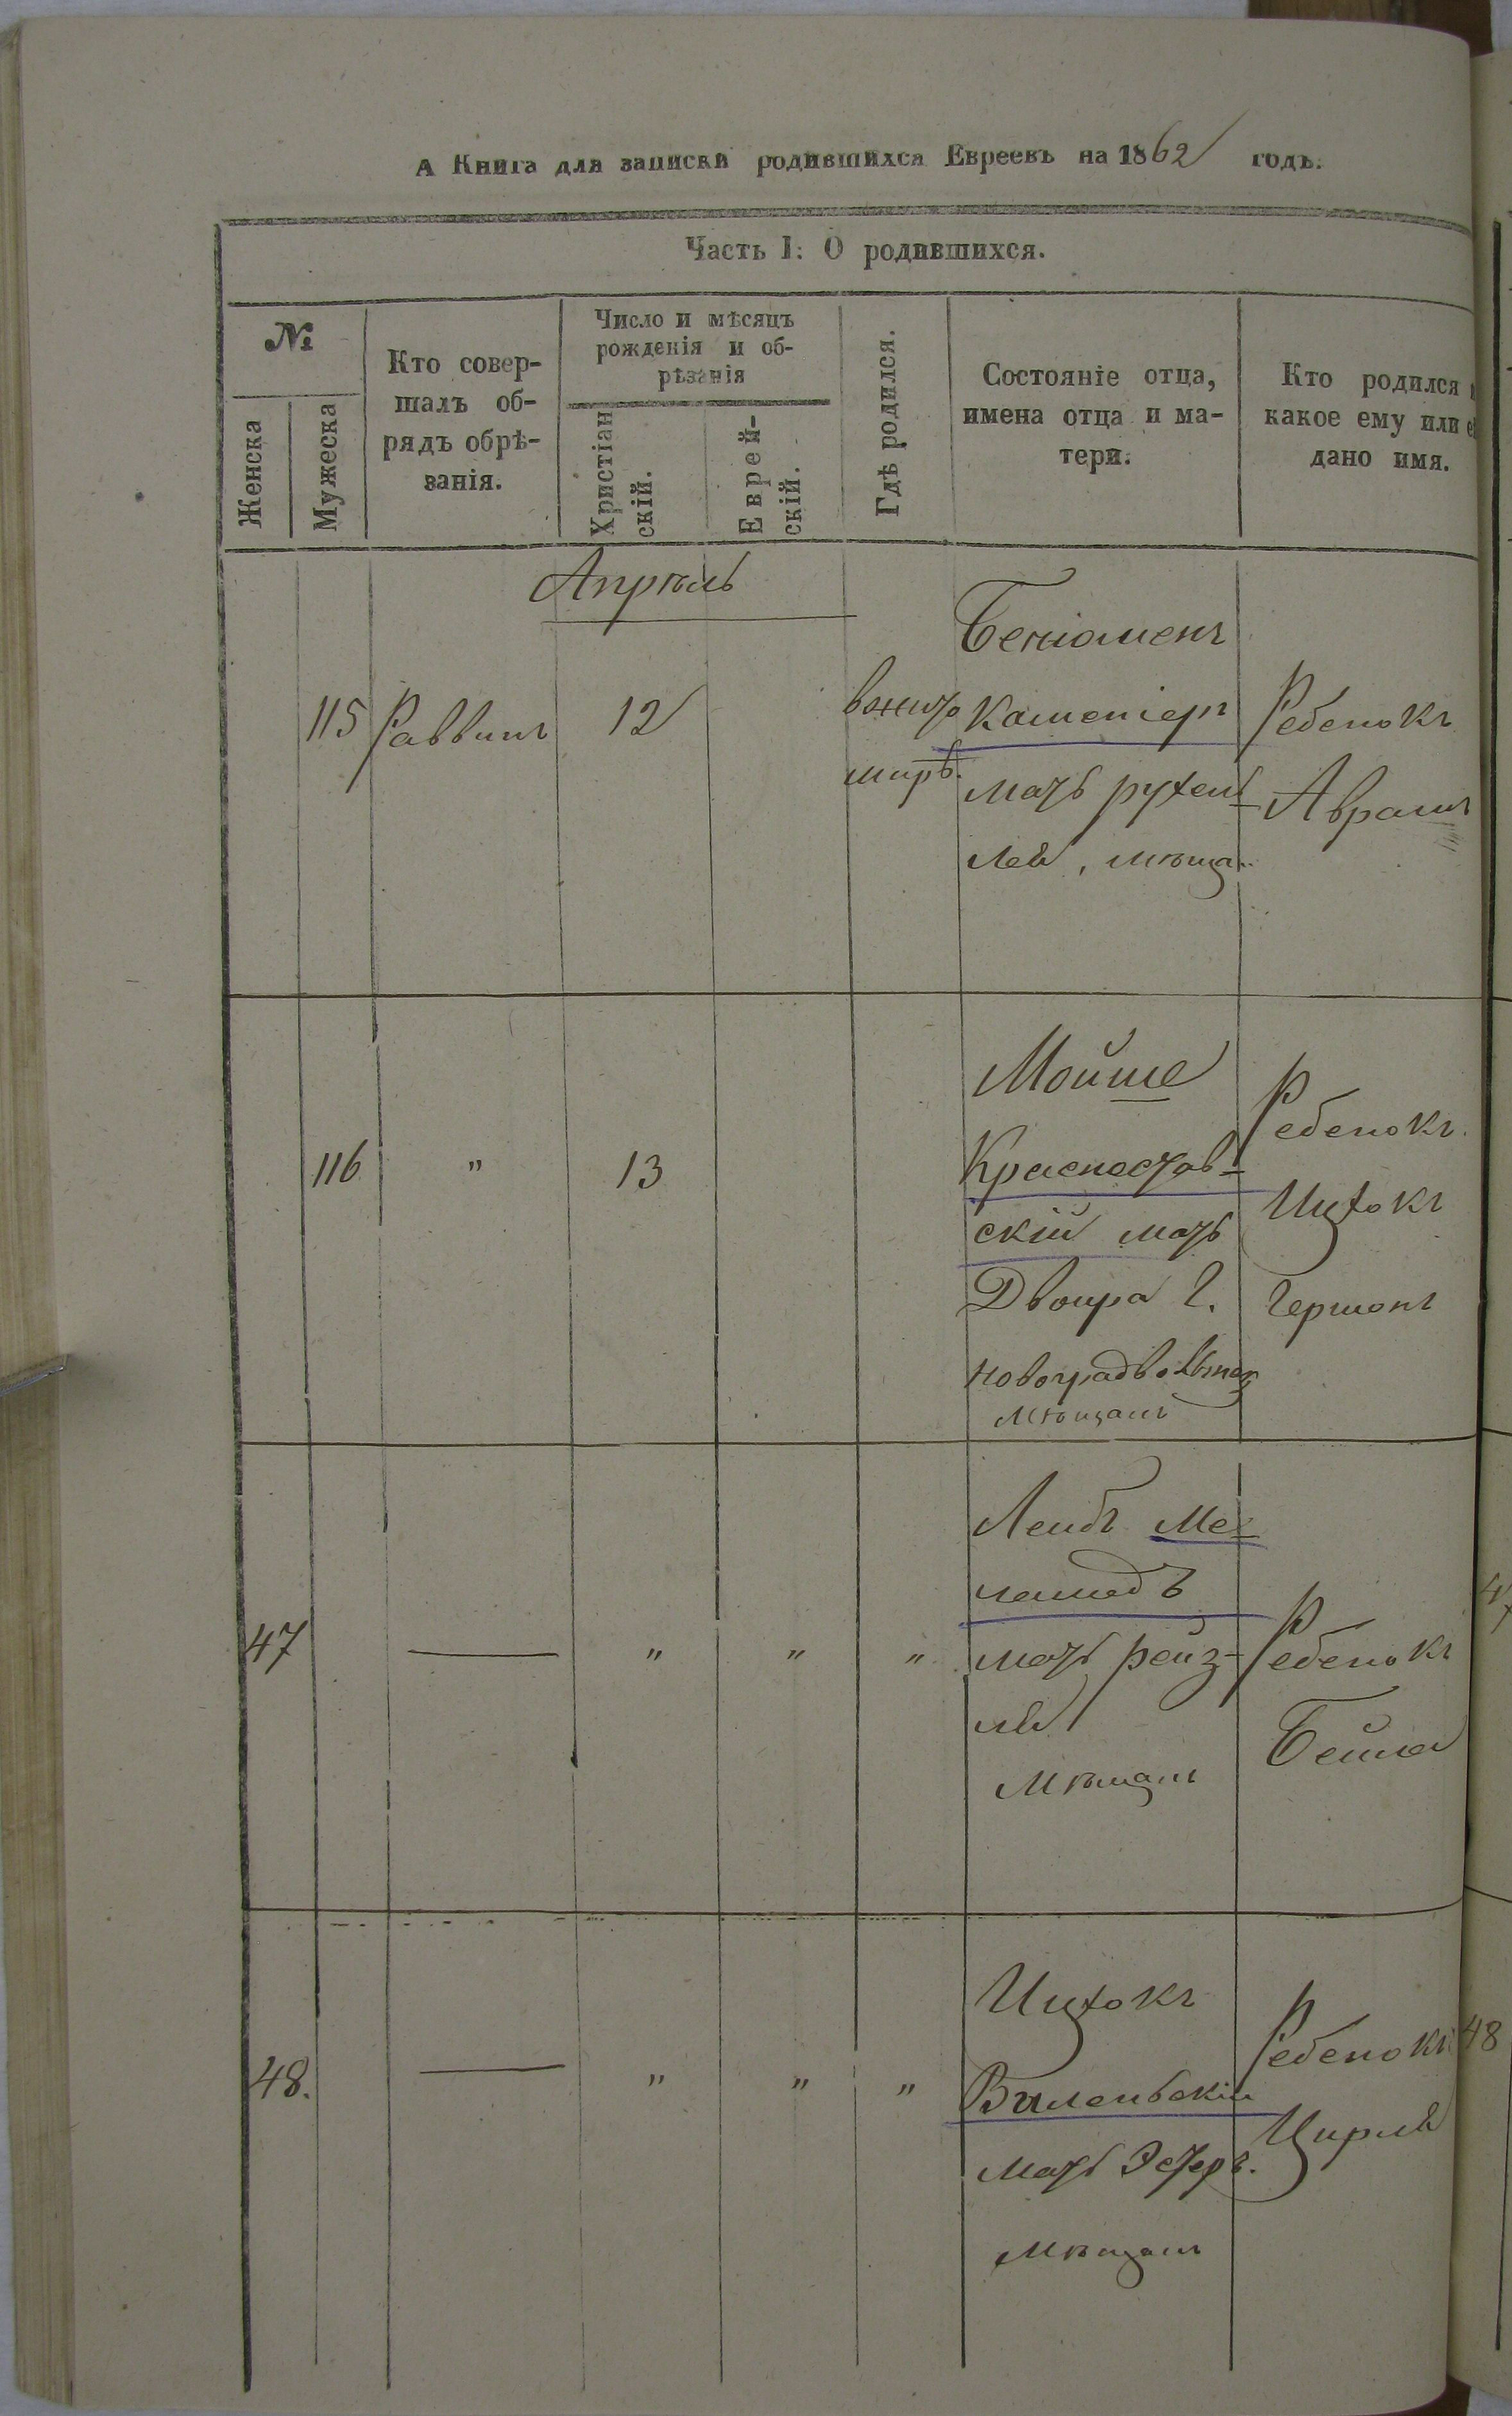 А Книга для записки родившихся Евреевъ на 1862 годъ.
Часть I: О родившихся.
№
Женска
Мужеска
Кто совер-
шалъ об-
рядъ обрѣ-
занія.
Число и мѣсяцъ
рожденія и об-
рѣзанія
Христіан
скій.
Еврей-
скій.
Гдѣ родился.
Состояніе отца,
имена отца и ма-
тери.
Кто родился
какое ему или
дано имя.
Апрѣль
115
Раввинъ
12
мирѣ.
Беніоменъ
мать рухель
Лея, мѣща..
Ребенокъ
Аврамъ
116
"
13
Мойше
Красностав-
скій мать
Двойра Г.
мѣщанъ
Ребенокъ.
Ицхокъ
Гершонъ
47
—
"
"
"
Лейбъ Ме-
ламедъ
мать рейз-
ля
мѣщанъ
Ребенокъ
Бейла
48.
—
"
"
"
Ицхокъ
Виленьскій
мать Эстеръ.
мѣщанъ
Ребенокъ
Цирля
48